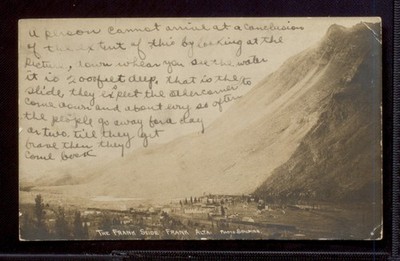 A person cannot arrive at a conclusion
of the extent of this by looking at the
Picture, down whear you see the water
it is 200 feet deep, that is the
slide, they expect the other corner to
come down and about evry so often
the people go away for a day
or two, till they get
brave then they
come back
THE FRANK SLIDE FRANK ALTA. PHOTO